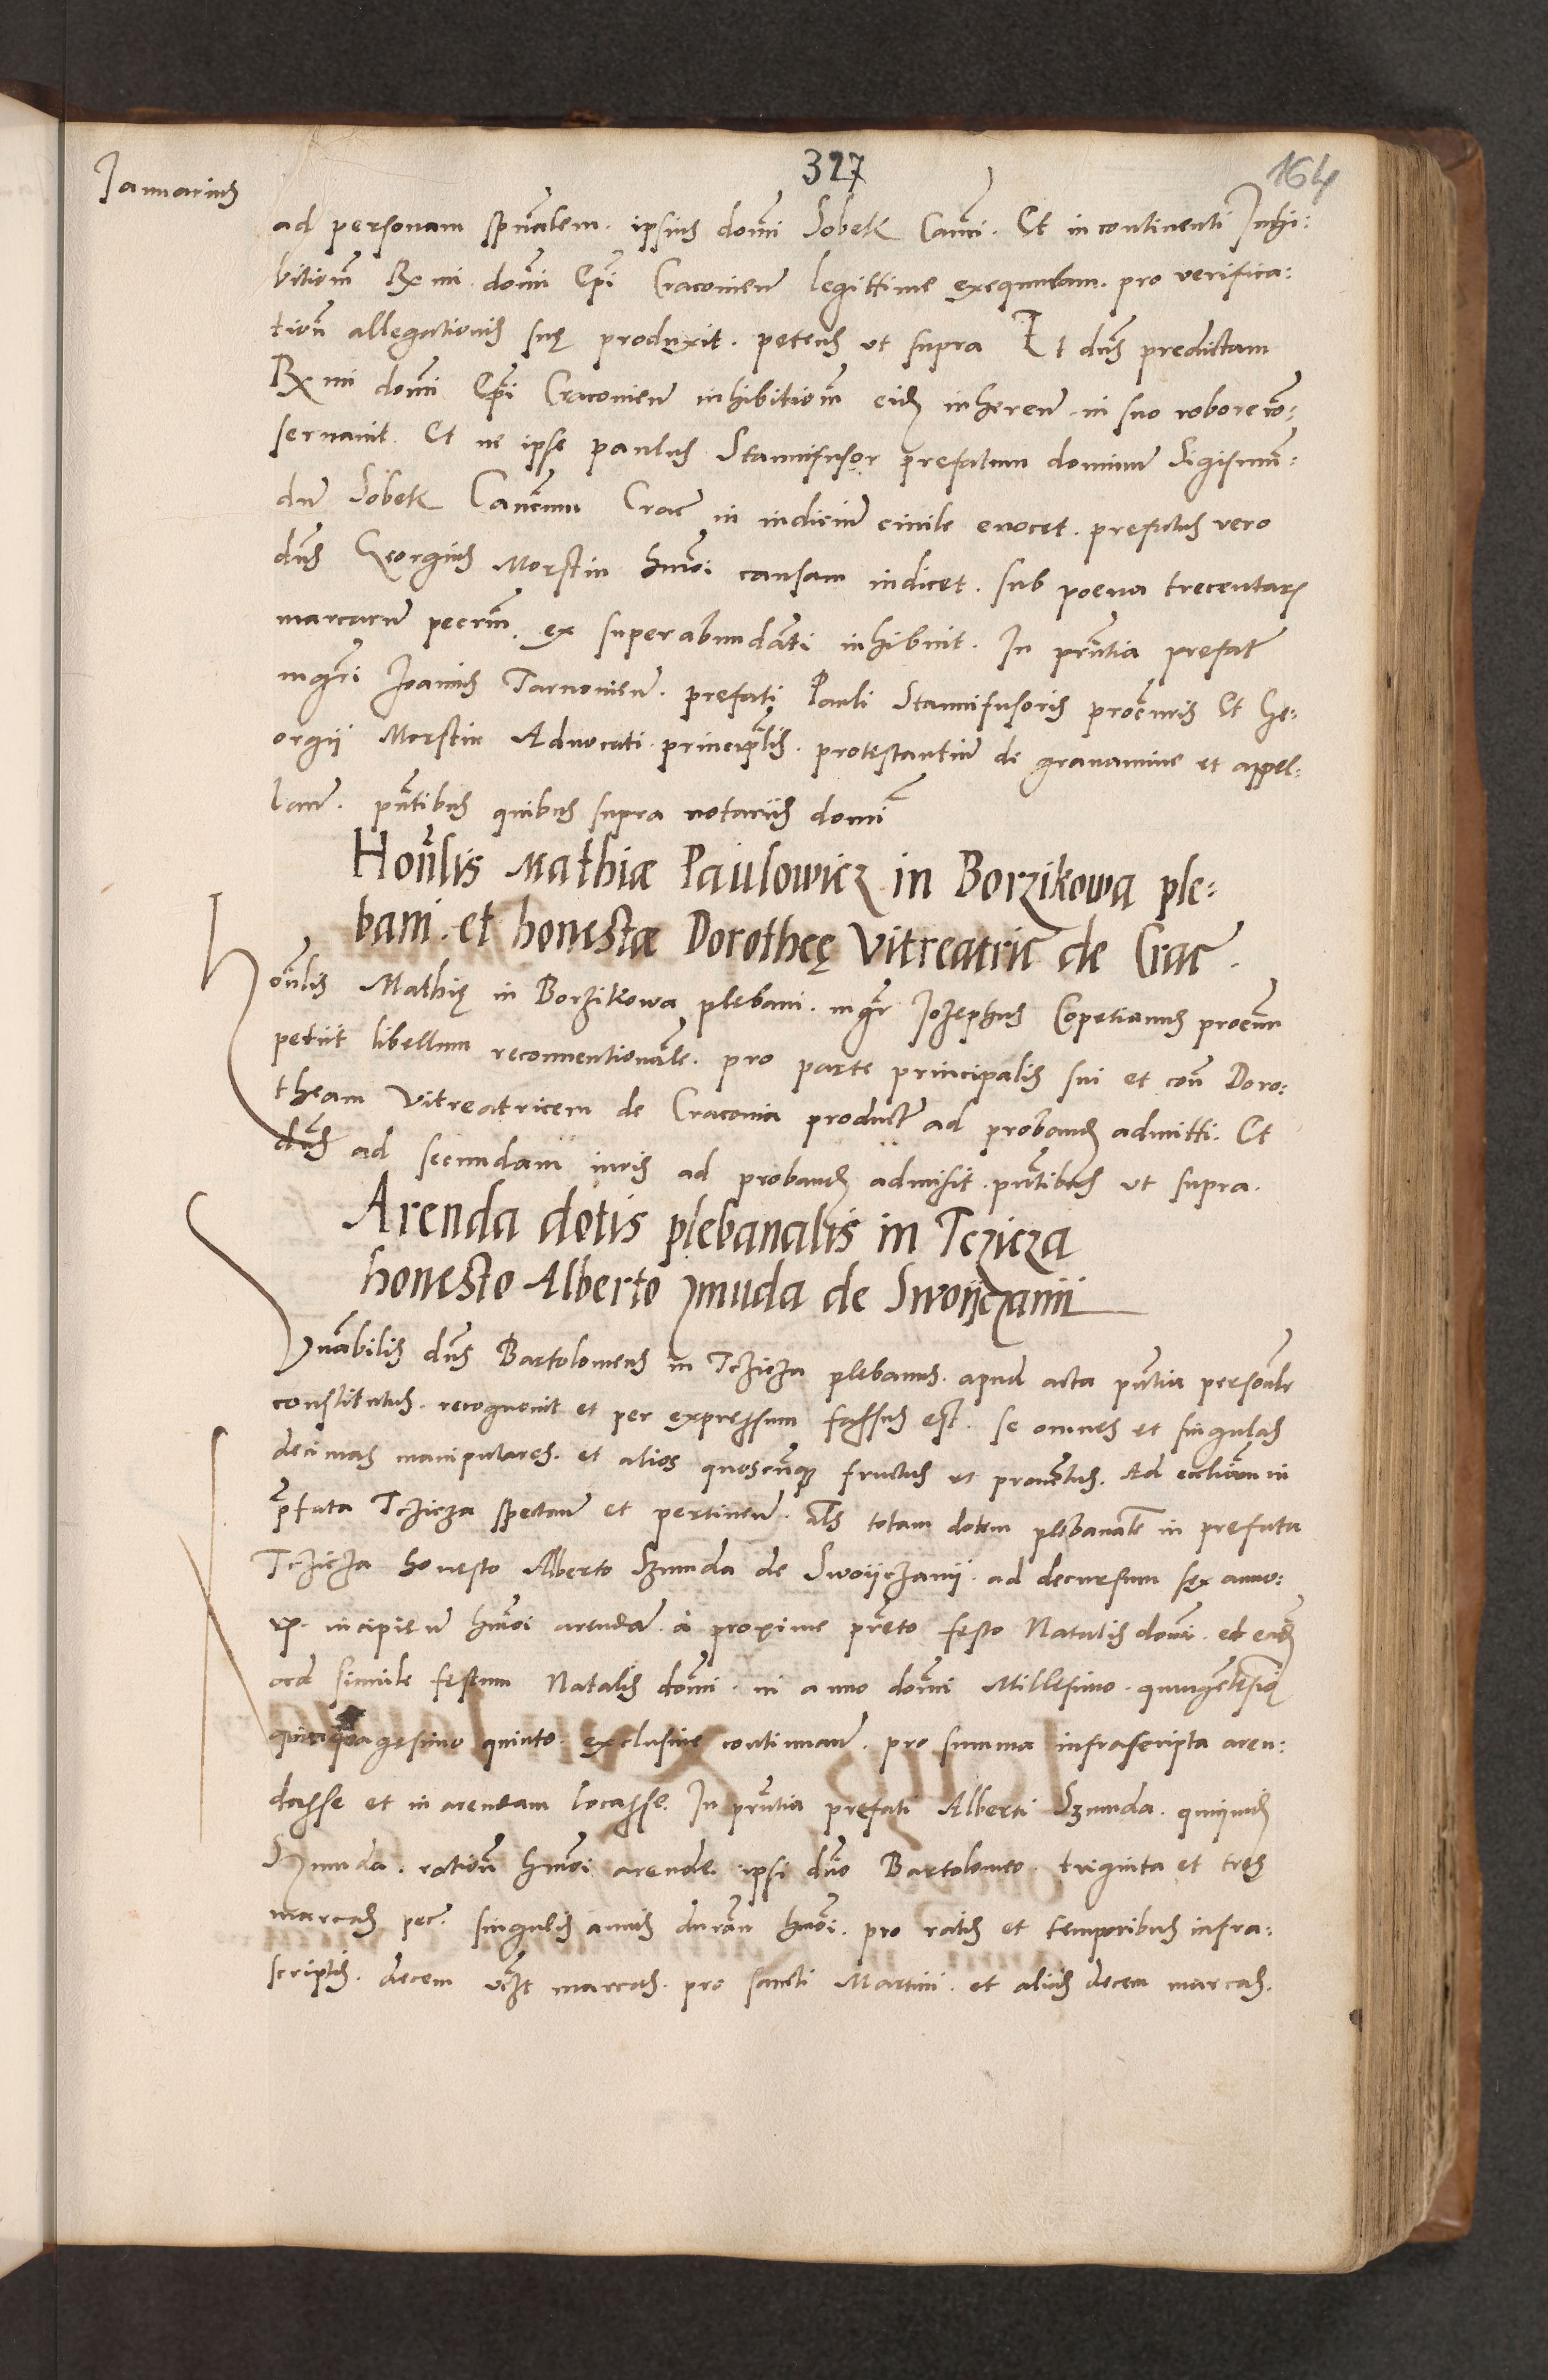 327
164
Januarius
ad personam spualem. ipsius domi Sobek Canci. Et in continenti Inhi:
bitiom Rx mi domi Epi Cracovien legittime exequutam. pro verifica:
tion allegationis suę produxit. petens ut supra Et dns predictam
Rx mi domi Epi Cracovien inhibitiom eid inheren in suo robore con:
servavit. Et ne ipse paulus Stannifusor prefatum dominum Sigismun:
dum Sobek Canonicum Crac in iudicium civile evocet. prefatus vero
dns Georgius Morstin hmoi causam iudicet. sub poena trecentar
marcarum pecrm. ex superabundati inhibuit. In pntia prefat
mgri Joannis Tarnovien. prefati Pauli Stannifusoris procuris Et Ge:
orgii Morstin Advocati principlis. protestantium de gravamine et appel:
lan. pntibus quibus supra notariis domi
Honlis Mathiæ Paulowicz in Borzikowa ple:
bani. et honestæ Dorotheę Vitreatric de Crac.
Honlis Mathię in Borzikowa plebani. mgr Josephus Copetianus procur
petiit libellum reconventionale. pro parte principalis sui et con Doro:
theam Vitreatricem de Cracovia product ad proband admitti. Et
dns ad secundam iuris ad proband admisit. pntibus ut supra.
Arenda dotis plebanalis in Tczicza
honesto Alberto Smuda de Swoijczanii
Vnabilis dns Bartolomeus in Tczicza plebanus. apud acta pntia personalr
constitutus. recognovit et per expressum fassus est. se omnes et singulas
decimas manipulares. et alios quoscunque fructus et proventus. Ad eccliam in
pfata Tczicza spectan et pertinen. als totam dotem plebanale in prefata
Tczicza honesto Alberto Szmuda de Swoijczanij. ad decursum sex anno:
rum. incipien hmoi arendam a proxime preto festo Natalis domi. et ead
ad simile festum Natalis domi. in anno domi Millesimo. quingentesio
quinquagesimo quinto. exclusive continuan. pro summa infrascripta aren:
dasse et in arendam locasse. In pntia prefati Alberti Szmuda. quiquid
Szmuda. ration hmoi arende. ipsi dno Bartolomeo. triginta et tres
marcas pec. singulis annis duran hmoi. pro ratis et temporibus infra:
scriptis. decem vczt marcas. pro sancti Martini. et alias decem marcas.